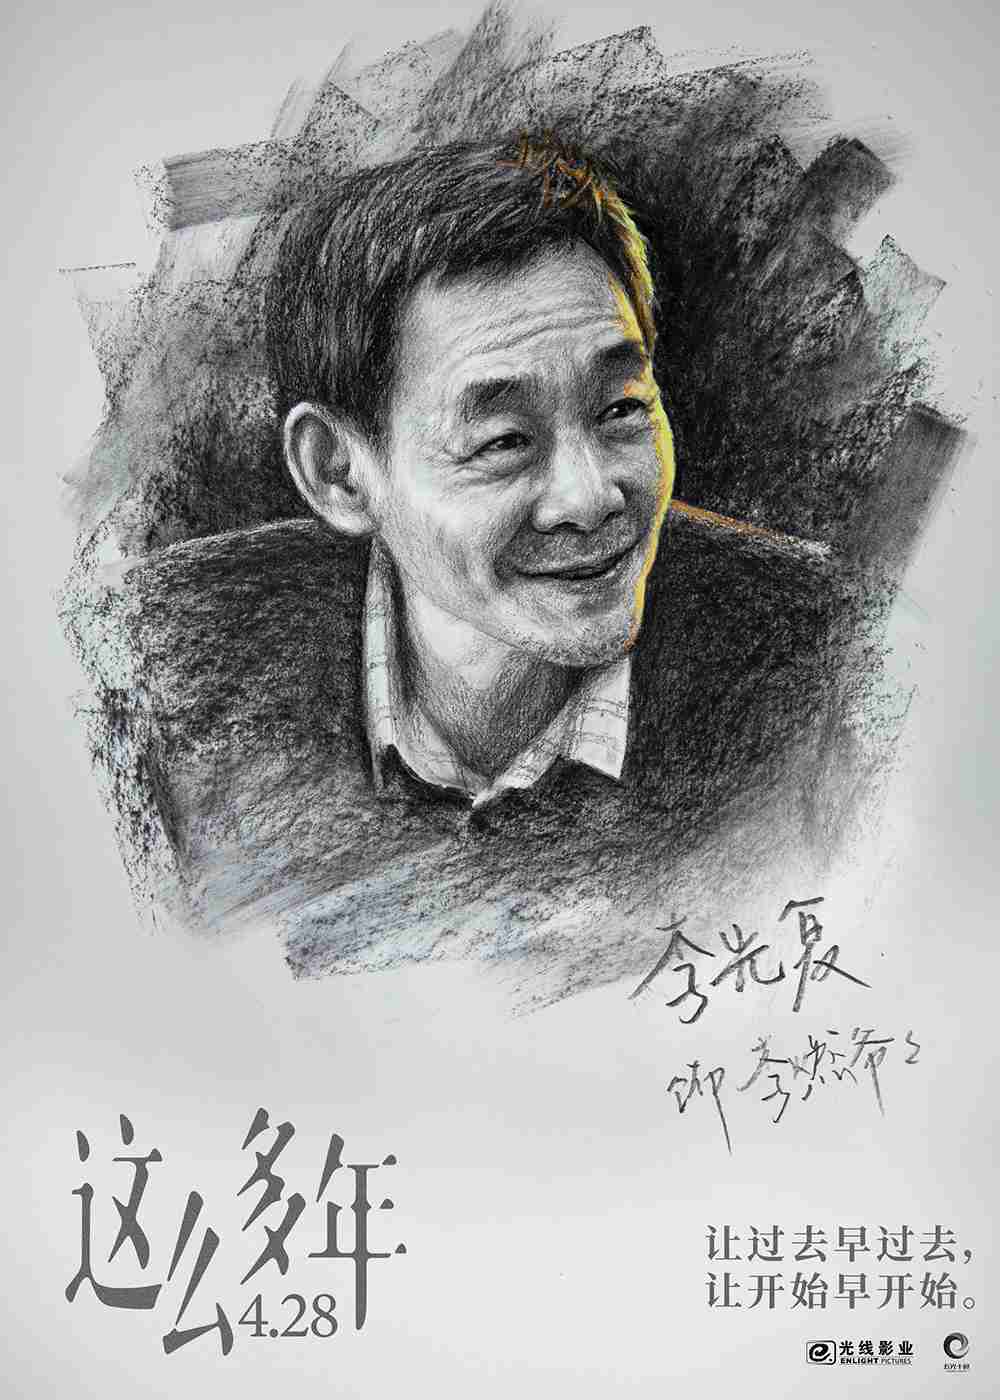 李光复
饰 李燃爷爷
这么多年
4.28
让过去早过去，
让开始早开始。
光线影业
ENLIGHT PICTURES
五光十色